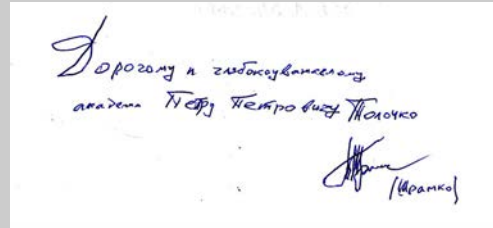 Дорогому и глубокоуважаемому
академи Петру Петровичу Толочко
(Шрамко)